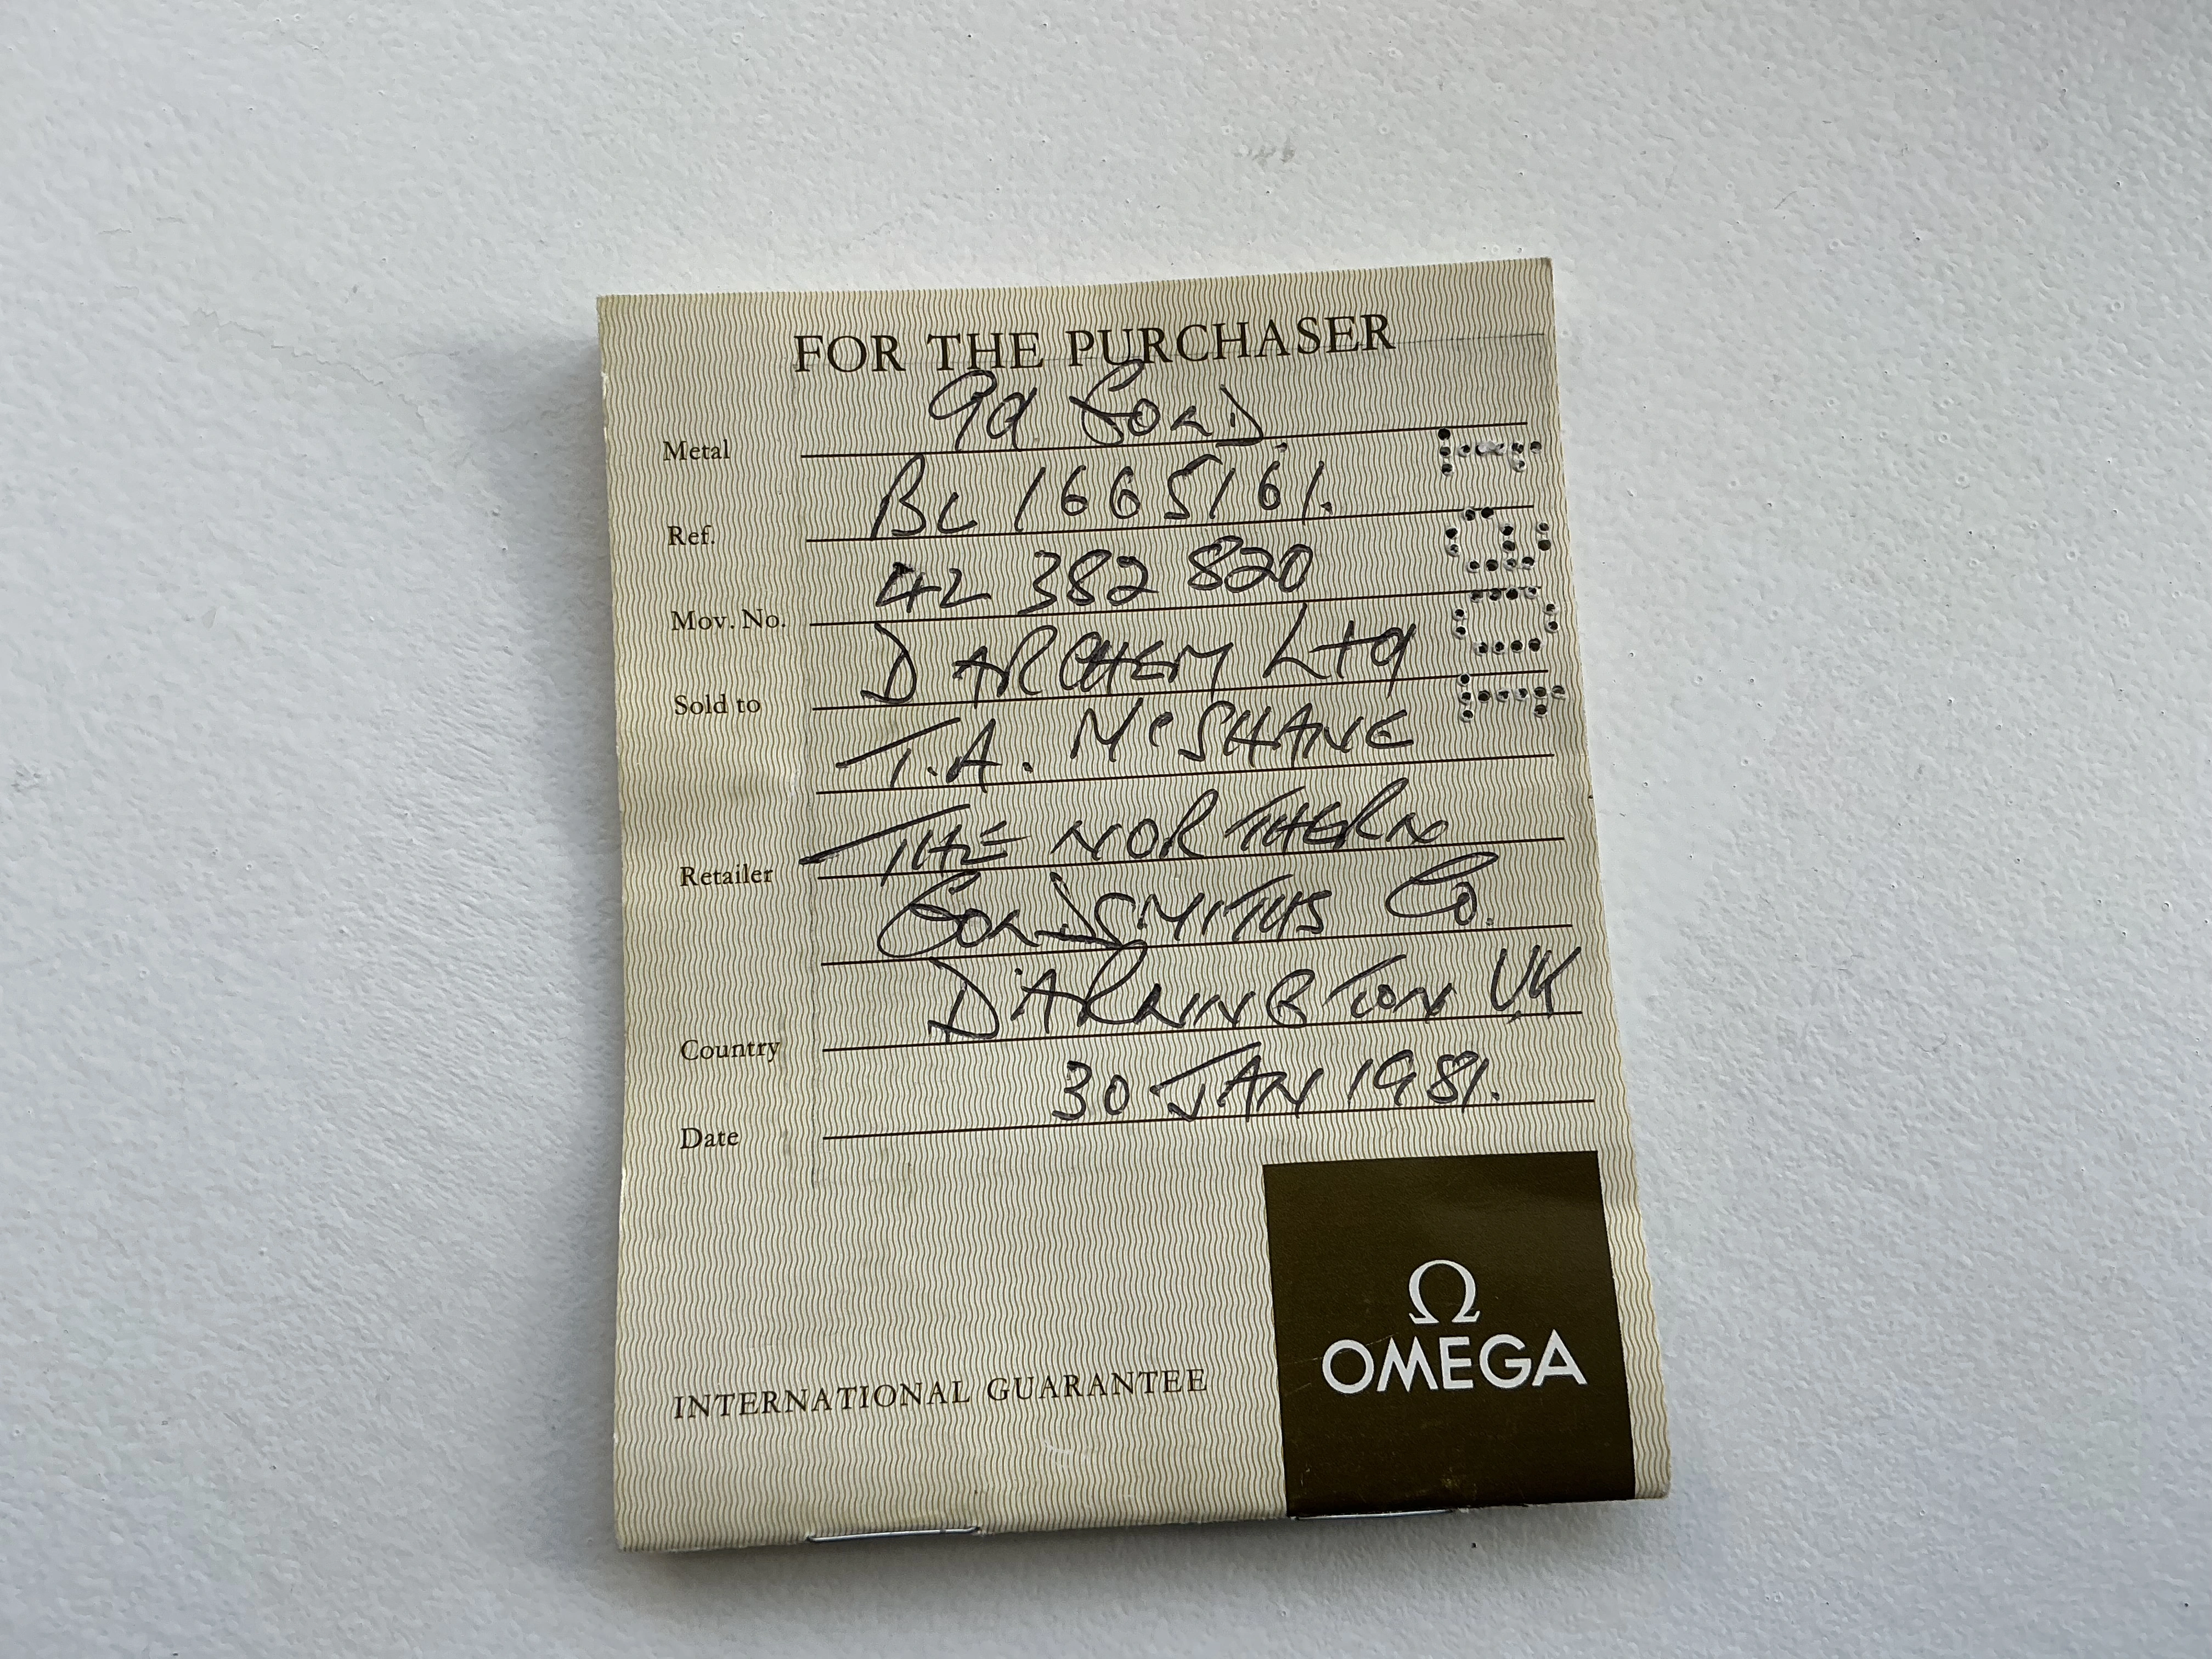 FOR THE PURCHASER
Metal 9ct GOLD.
Ref. BL 1665161.
Mov. No. 42 382 820
Sold to DARCHEM Ltd
T.A. McSHANE
Retailer THE NORTHERN
GOLDSMITHS Co.
Country DARLINGTON UK
Date 30 JAN 1981.
Ω
OMEGA
INTERNATIONAL GUARANTEE